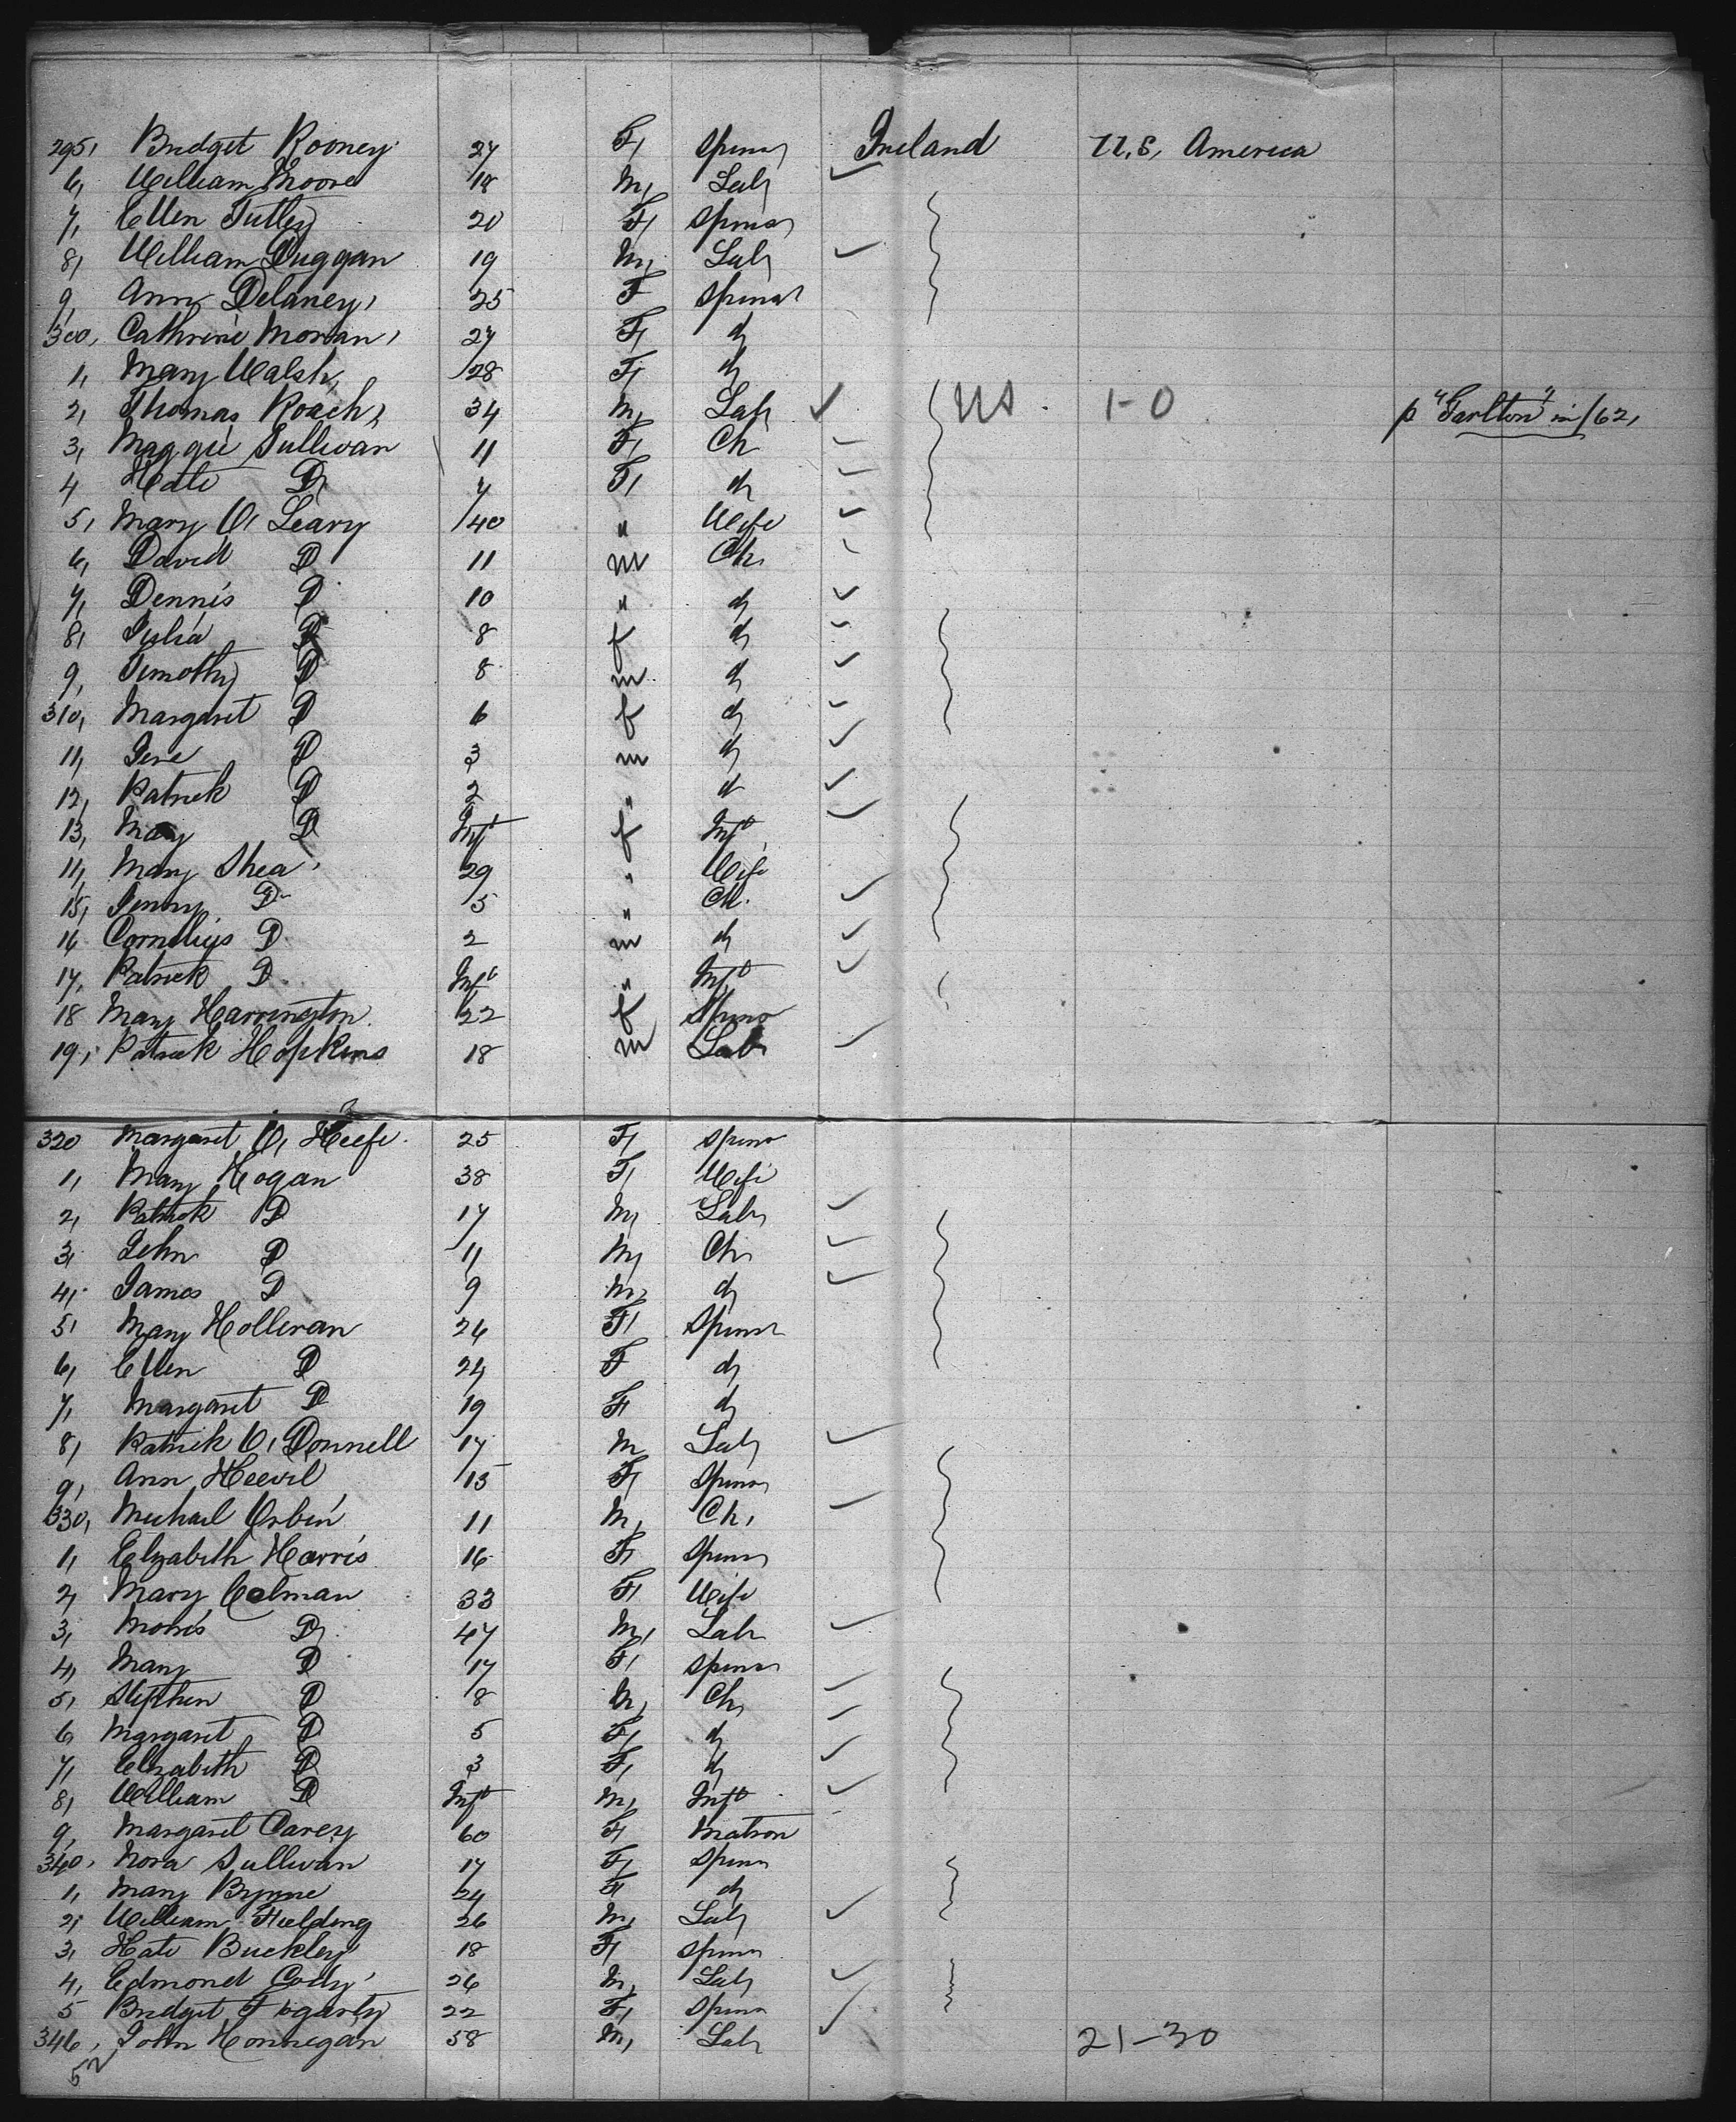 295, Bridget Rooney 24 F, Spinsr Ireland U.S. America
6, William Moore 18 M, Labr
7, Ellen 20 F, Spinsr
8, William Duggan 19 M, Labr
9, Ann Delaney, 25 F Spinsr
300, Cathrine 24 F, d
1, Mary Walsh, 28 F, d
2, Thomas Roach, 34 M, Labr US. 1-0 p "Tarlton" in /62,
3, Maggie Sullivan 11 F, Ch
4 Kate D, 7 F, d
5, Mary O, Leary 40 " Wife
6, David D 11 m Ch,
7, Dennis D 10 " d
8, Julia D 8 f d
9, Timothy D 8 m d
310, Margaret D 6 f d
11, D 3 m d
12, Patrick D 2 " d
13, Mary D Inft f Inft
11, Mary Shea 29 " Wife
15, D 5 " Ch.
16 Cornelius D. 2 m d
17, Patrick D. Inft " Inft
18 Mary Harrington. 22 f Spins
19, Patrick Hopkins 18 m Labr
320 Margaret O, Keefe. 25 F, Spins
1, Mary Hogan 38 F, Wife
2, Patrick D 17 M, Labr
3, John D 11 M, Ch
4, James D 9 M, d
5, Mary Holleran 26 F, Spinsr
6, Ellen D 24 F d
7, Margaret D 19 F, d
8, Patrick O, Donnell 17 M Labr
9, Ann 15 F, Spinsr
330, Michael 11 M, Ch,
1, Elizabeth Harris 16 F, Spinsr
2, Mary Colman 33 F, Wife
3, Morris D, 47 M, Labr
4, Mary D 17 F, Spinsr
5, Stephen D 8 M, Ch,
6, Margaret D 5 F, d
7, Elizabeth D 3 F, d
8, William D Inft M, Inft
9, Margaret Carey 60 F, Matron
340, Nora Sullivan 17 F, Spinsr
1, Mary Byrne 24 F d
2, William Fielding 26 M, Labr
3, Kate Buckley 18 F, Spinsr
4, Edmond Cody 26 M, Labr
5 Bridget Fogarty 22 F, Spinsr
346, John Honnegan 58 M, Labr 21-30
52